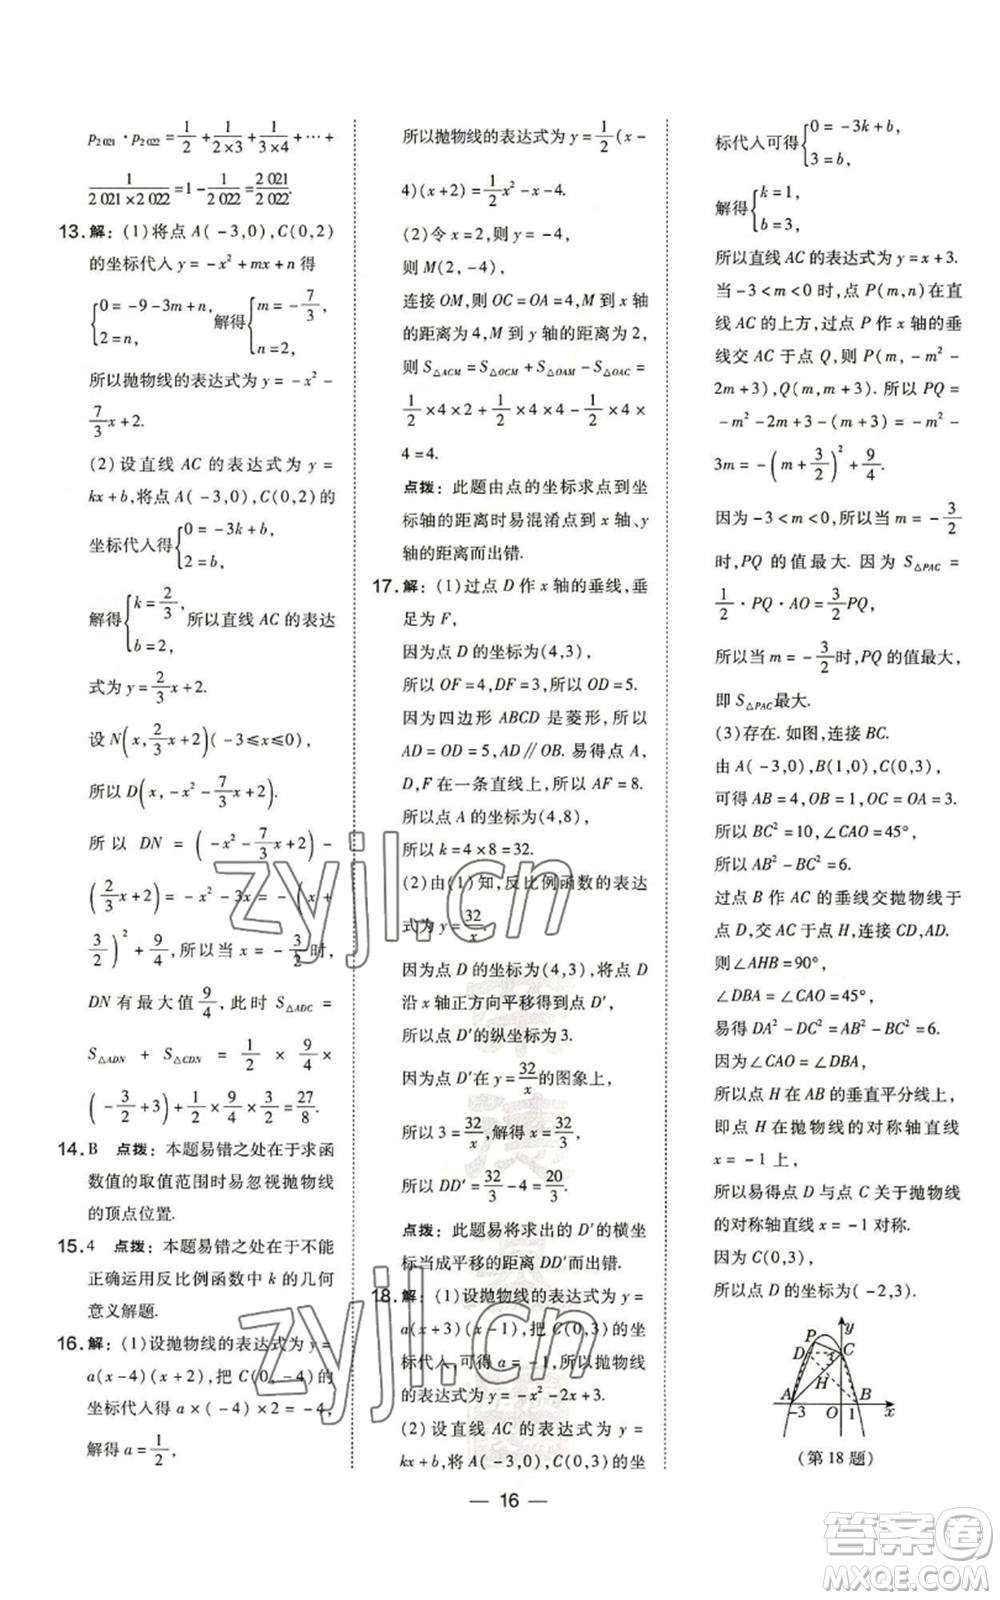 p₂₀₂₁ · p₂₀₂₂ = 1/2 + 1/(2×3) + 1/(3×4) + … +
1/(2 021×2 022) = 1 − 1/2 022 = 2 021/2 022.
13. 解：(1)将点 A(−3,0),C(0,2)
的坐标代入 y = −x² + mx + n 得
{0 = −9 − 3m + n, 2 = n, 解得 {m = −7/3, n = 2,
所以抛物线的表达式为 y = −x² −
7/3 x + 2.
(2)设直线 AC 的表达式为 y =
kx + b,将点 A(−3,0),C(0,2)的
坐标代入得 {0 = −3k + b, 2 = b,
解得 {k = 2/3, b = 2, 所以直线 AC 的表达
式为 y = 2/3 x + 2.
设 N(x, 2/3 x + 2)(−3≤x≤0),
所以 D(x, −x² − 7/3 x + 2).
所以 DN = (−x² − 7/3 x + 2) −
(2/3 x + 2) = −x² − 3x = −(x +
3/2)² + 9/4,所以当 x = −3/2 时,
DN 有最大值 9/4, 此时 S△ADC =
S△ADN + S△CDN = 1/2 × 9/4 ×
(−3/2 + 3) + 1/2 × 9/4 × 3/2 = 27/8.
14. B 点拨：本题易错之处在于求函
数值的取值范围时易忽视抛物线
的顶点位置.
15. 4 点拨：本题易错之处在于不能
正确运用反比例函数中 k 的几何
意义解题.
16. 解：(1)设抛物线的表达式为 y =
a(x−4)(x+2),把 C(0,−4)的
坐标代入得 a×(−4)×2 = −4,
解得 a = 1/2,
所以抛物线的表达式为 y = 1/2 (x −
4)(x+2) = 1/2 x² − x − 4.
(2)令 x = 2,则 y = −4,
则 M(2,−4),
连接 OM,则 OC = OA = 4,M 到 x 轴
的距离为 4,M 到 y 轴的距离为 2,
则 S△ACM = S△OCM + S△OAM − S△OAC =
1/2 ×4×2 + 1/2 ×4×4 − 1/2 ×4×
4 = 4.
点拨：此题由点的坐标求点到坐
标轴的距离时易混淆点到 x 轴、y
轴的距离而出错.
17. 解：(1)过点 D 作 x 轴的垂线,垂
足为 F,
因为点 D 的坐标为(4,3),
所以 OF = 4,DF = 3,所以 OD = 5.
因为四边形 ABCD 是菱形,所以
AD = OD = 5,AD∥OB. 易得点 A,
D,F 在一条直线上,所以 AF = 8.
所以点 A 的坐标为(4,8),
所以 k = 4×8 = 32.
(2)由(1)知,反比例函数的表达
式为 y = 32/x.
因为点 D 的坐标为(4,3),将点 D
沿 x 轴正方向平移得到点 D′,
所以点 D′的纵坐标为 3.
因为点 D′在 y = 32/x 的图象上,
所以 3 = 32/x,解得 x = 32/3,
所以 DD′ = 32/3 − 4 = 20/3.
点拨：此题易将求出的 D′的横坐
标当成平移的距离 DD′而出错.
18. 解：(1)设抛物线的表达式为 y =
a(x+3)(x−1),把 C(0,3)的坐
标代入,可得 a = −1,所以抛物线
的表达式为 y = −x² − 2x + 3.
(2)设直线 AC 的表达式为 y =
kx + b,将 A(−3,0),C(0,3)的坐
标代入可得 {0 = −3k + b, 3 = b,
解得 {k = 1, b = 3.
所以直线 AC 的表达式为 y = x + 3.
当 −3 < m < 0 时,点 P(m,n)在直
线 AC 的上方,过点 P 作 x 轴的垂
线交 AC 于点 Q,则 P(m,−m² −
2m + 3),Q(m,m + 3). 所以 PQ =
−m² − 2m + 3 − (m + 3) = −m² −
3m = −(m + 3/2)² + 9/4.
因为 −3 < m < 0,所以当 m = −3/2
时,PQ 的值最大. 因为 S△PAC =
1/2 · PQ · AO = 3/2 PQ,
所以当 m = −3/2 时,PQ 的值最大,
即 S△PAC最大.
(3)存在. 如图,连接 BC.
由 A(−3,0),B(1,0),C(0,3),
可得 AB = 4,OB = 1,OC = OA = 3.
所以 BC² = 10,∠CAO = 45°,
所以 AB² − BC² = 6.
过点 B 作 AC 的垂线交抛物线于
点 D,交 AC 于点 H,连接 CD,AD.
则∠AHB = 90°,
∠DBA = ∠CAO = 45°,
易得 DA² − DC² = AB² − BC² = 6.
因为∠CAO = ∠DBA,
所以点 H 在 AB 的垂直平分线上,
即点 H 在抛物线的对称轴直线
x = −1 上,
所以易得点 D 与点 C 关于抛物线
的对称轴直线 x = −1 对称.
因为 C(0,3),
所以点 D 的坐标为(−2,3).
P y
D C
H
A B
−3 O 1 x
(第 18 题)
— 16 —
zyjl.cn
zyjl.cn
答案卷
MXQE.COM